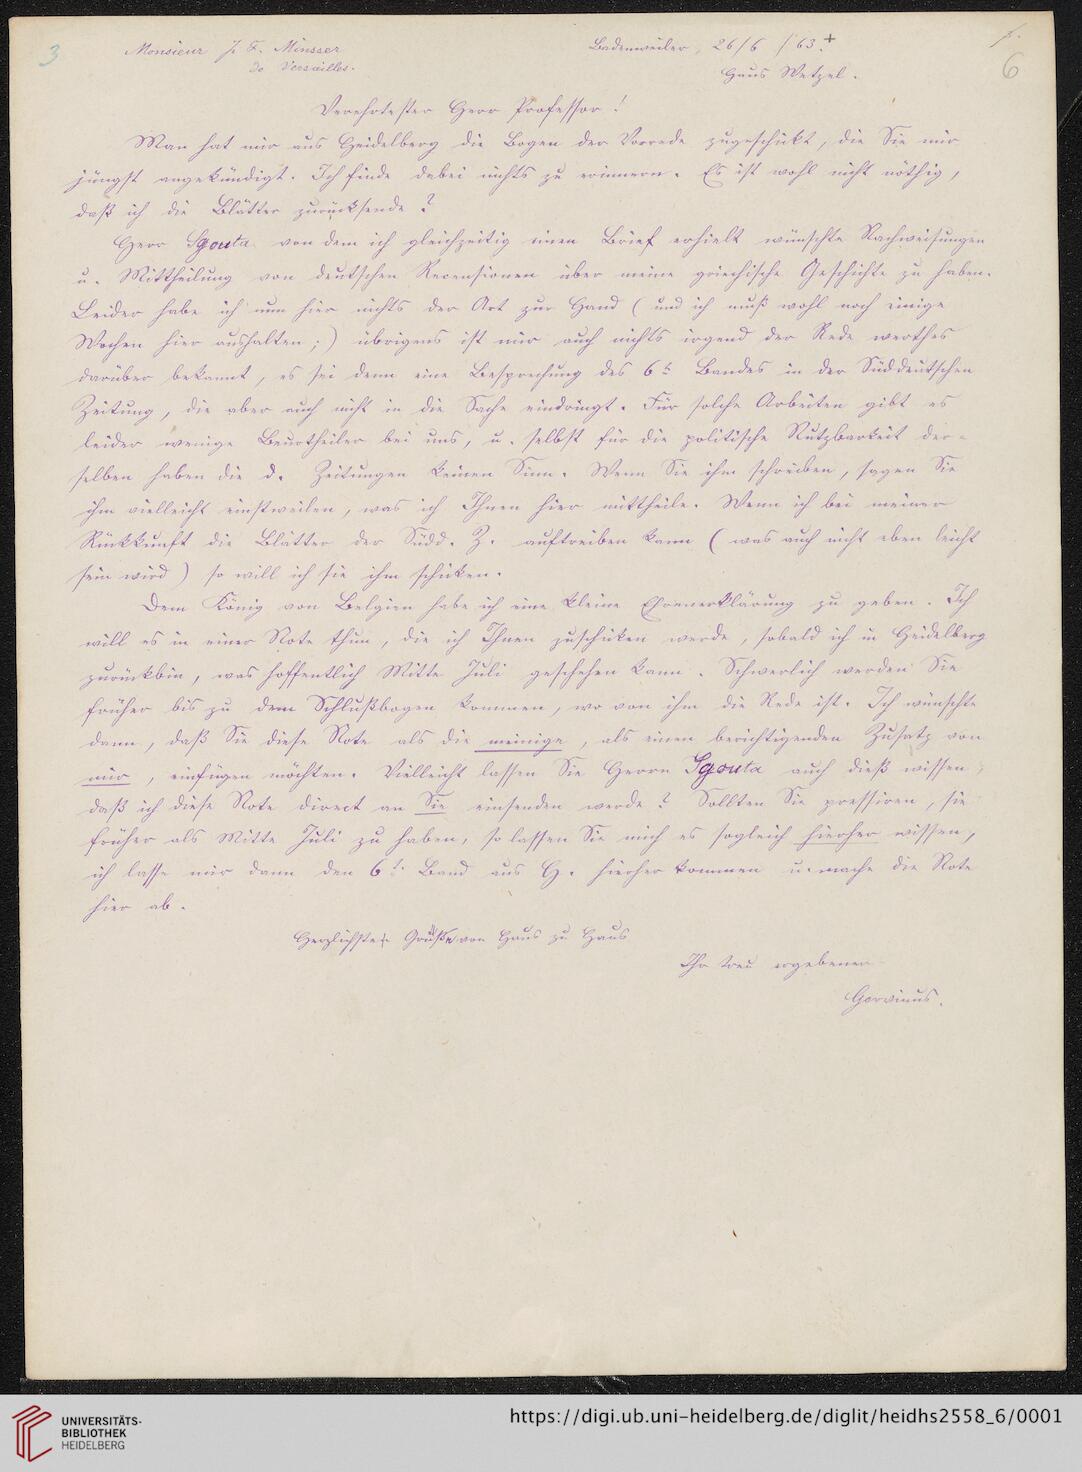 3
Monsieur J. F. Minsser
de Versailles.
Badenweiler, 26/6 /63.+
Haus Wetzel.
6
Verehrtester Herr Professor!
Man hat mir aus Heidelberg die Bogen der Vorrede zugeschickt, die Sie mir
jüngst angekündigt. Ich finde dabei nichts zu erinnern. Es ist wohl nicht nöthig,
daß ich die Blätter zurücksende?
Herr Sgouta von dem ich gleichzeitig einen Brief erhielt wünschte Nachweisungen
u. Mittheilung von deutschen Recensionen über meine griechische Geschichte zu haben.
Leider habe ich nun hier nichts der Art zur Hand (und ich muß wohl noch einige
Wochen hier aushalten;) übrigens ist mir auch nichts irgend der Rede werthes
darüber bekannt, es sei denn eine Besprechung des 6t. Bandes in der Süddeutschen
Zeitung, die aber auch nicht in die Sache eindringt. Für solche Arbeiten gibt es
leider wenige Beurtheiler bei uns, u. selbst für die politische Nutzbarkeit der-
selben haben die d. Zeitungen keinen Sinn. Wenn Sie ihm schreiben, sagen Sie
ihm vielleicht einstweilen, was ich Ihnen hier mittheile. Wenn ich bei meiner
Rückkunft die Blätter der Südd. Z. auftreiben kann (was auch nicht eben leicht
sein wird) so will ich sie ihm schicken.
Dem König von Belgien habe ich eine kleine Ehrenerklärung zu geben. Ich
will es in einer Note thun, die ich Ihnen zuschicken werde, sobald ich in Heidelberg
zurückbin, was hoffentlich Mitte Juli geschehen kann. Schwerlich werden Sie
früher bis zu dem Schlußbogen kommen, wo von ihm die Rede ist. Ich wünschte
dann, daß Sie diese Note als die meinige, als einen berichtigenden Zusatz von
mir, einfügen möchten. Vielleicht lassen Sie Herrn Sgouta auch dieß wissen,
daß ich diese Note direct an Sie einsenden werde? Sollten Sie pressiren, sie
früher als Mitte Juli zu haben, so lassen Sie mich es sogleich hierher wissen,
ich lasse mir dann den 6t. Band aus H. hierher kommen u. mache die Note
hier ab.
Herzlichste Grüße von Haus zu Haus
Ihr treu ergebener
Gervinus.
UNIVERSITÄTS-
BIBLIOTHEK
HEIDELBERG
https://digi.ub.uni-heidelberg.de/diglit/heidhs2558_6/0001